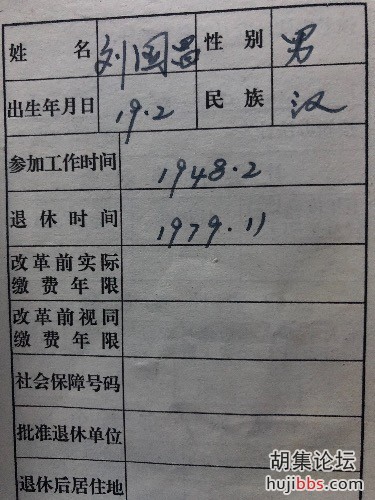 姓名 刘国昌 性别 男
出生年月日 19.2 民族 汉
参加工作时间 1948.2
退休时间 1979.11
改革前实际
缴费年限
改革前视同
缴费年限
社会保障号码
批准退休单位
退休后居住地
胡集论坛
hujibbs.com